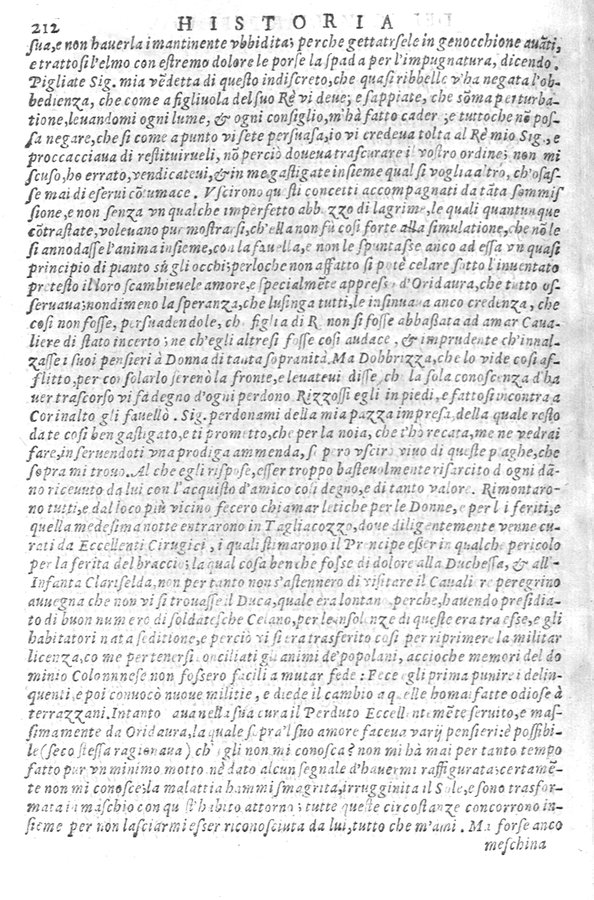 212 HISTORIA
sua, e non hauerla imantinente vbbidita; perche gettatrsele in genocchione auãti,
e trattosi l'elmo con estremo dolore le porse la spada per l'impugnatura, dicendo.
Pigliate Sig. mia vẽdetta di questo indiscreto, che quasi ribelle v'ha negata l'ob-
bedienza, che come a figliuola del suo Rè vi deue; e sappiate, che sõma perturba-
tione, leuandomi ogni lume, & ogni consiglio, m'hà fatto cader; e tuttoche nõ pos-
sa negare, che si come a punto vi sete persuasa, io vi credeua tolta al Rè mio Sig., e
proccacciaua di restituirueli, nõ perciò doueua trascurare il vostro ordine; non mi
scuso, ho errato, vendicateui, & in me gastigate insieme qual si voglia altro, ch'osas-
se mai di eserui cõtumace. Vscirono questi concetti accompagnati da tãta sommis
sione, e non senza vn qualche imperfetto abbozzo di lagrime, le quali quantunque
cõtrastate, voleuano pur mostrarsi, ch'ella non fù così forte alla simulatione, che nõ le
si annodasse l'anima insieme, con la fauella, e non le spuntasse anco ad essa vn quasi
principio di pianto sù gli occhi; perloche non affatto si potè celare sotto l'inuentato
pretesto il loro scambieuele amore, e specialmẽte appresso d'Oridaura, che tutto os-
seruaua; nondimeno la speranza, che lusinga tutti, le insinuaua anco credenza, che
così non fosse, persuadendole, ch figlia di R non si fosse abbaßata ad amar Caua-
liere di stato incerto; ne ch'egli altresì fosse così audace, & imprudente ch'innal-
zasse i suoi pensieri à Donna di tanta sopranità. Ma Dobbrizza, che lo vide così af-
flitto, per consolarlo serenò la fronte, e leuateui disse, ch la sola conoscenza d'ha
uer trascorso vi fa degno d'ogni perdono Rizzossi egli in piedi, e fattosi incontra a
Corinalto gli fauellò. Sig. perdonami della mia pazza impresa, della quale resto
da te così ben gastigato, e ti prometto, che per la noia, che t'hò recata, me ne vedrai
fare, in seruendoti vna prodiga ammenda, se però vscirò viuo di queste piaghe, che
sopra mi trouo. Al che egli rispose, esser troppo basteuolmente risarcito d ogni dã-
no riceuuto da lui con l'acquisto d'amico così degno, e di tanto valore. Rimontaro-
no tutti, e dal loco più vicino fecero chiamar letiche per le Donne, e per li feriti, e
quella medesima notte entrarono in Tagliacozzo, doue diligentemente venne cu-
rati da Eccellenti Cirugici, i quali stimarono il Prencipe esser in qualche pericolo
per la ferita del braccio; la qual cosa benche fosse di dolore alla Duchessa, & all-
Infanta Clariselda, non per tanto non s'astennero di visitare il Cauali re peregrino
auuegna che non vi si trouasse il Duca, quale era lontano perche, hauendo presidia-
to di buon numero di soldatesche Celano, per le insolenze di queste era tra esse, e gli
habitatori nata seditione, e perciò vi si era trasferito così per riprimere la militar
licenza, co me per tenersi conciliati gli animi de' popolani, accioche memori del do
minio Colonnnese non fossero facili a mutar fede: Fece egli prima punire i delin-
quenti, e poi conuocò nuoue militie, e diede il cambio a quelle homai fatte odiose à
terrazzani. Intanto staua nella sua cura il Perduto Eccellentemẽte seruito, e mas-
simamente da Oridaura, la quale sopra'l suo amore faceua varij pensieri: è possibi-
le (seco stessa ragionaua) ch'egli non mi conosca? non mi hà mai per tanto tempo
fatto pur vn minimo motto, nè dato alcun segnale d'hauermi raffigurata; certamẽ-
te non mi conosce; la malattia hammi smagrita, irrugginita il Sole, e sono trasfor-
mata in maschio con qu st'habito attorno; tutte queste circostanze concorrono in-
sieme per non lasciarmi esser riconosciuta da lui, tutto che m'ami. Ma forse anco
meschina